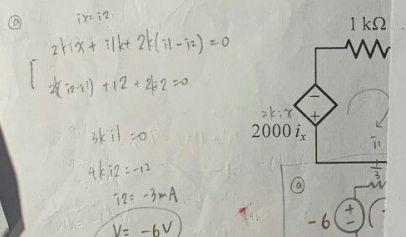 ⓐ ix=i2
2kix + i1k + 2k(i1-i2)=0
2k(i2-i1) +12 + 2ki2=0
3ki1=0
4ki2=-12
i2=-3mA
V=-6V
1 kΩ
-
+
2kix
2000 iₓ
i1
ⓐ
-6
+